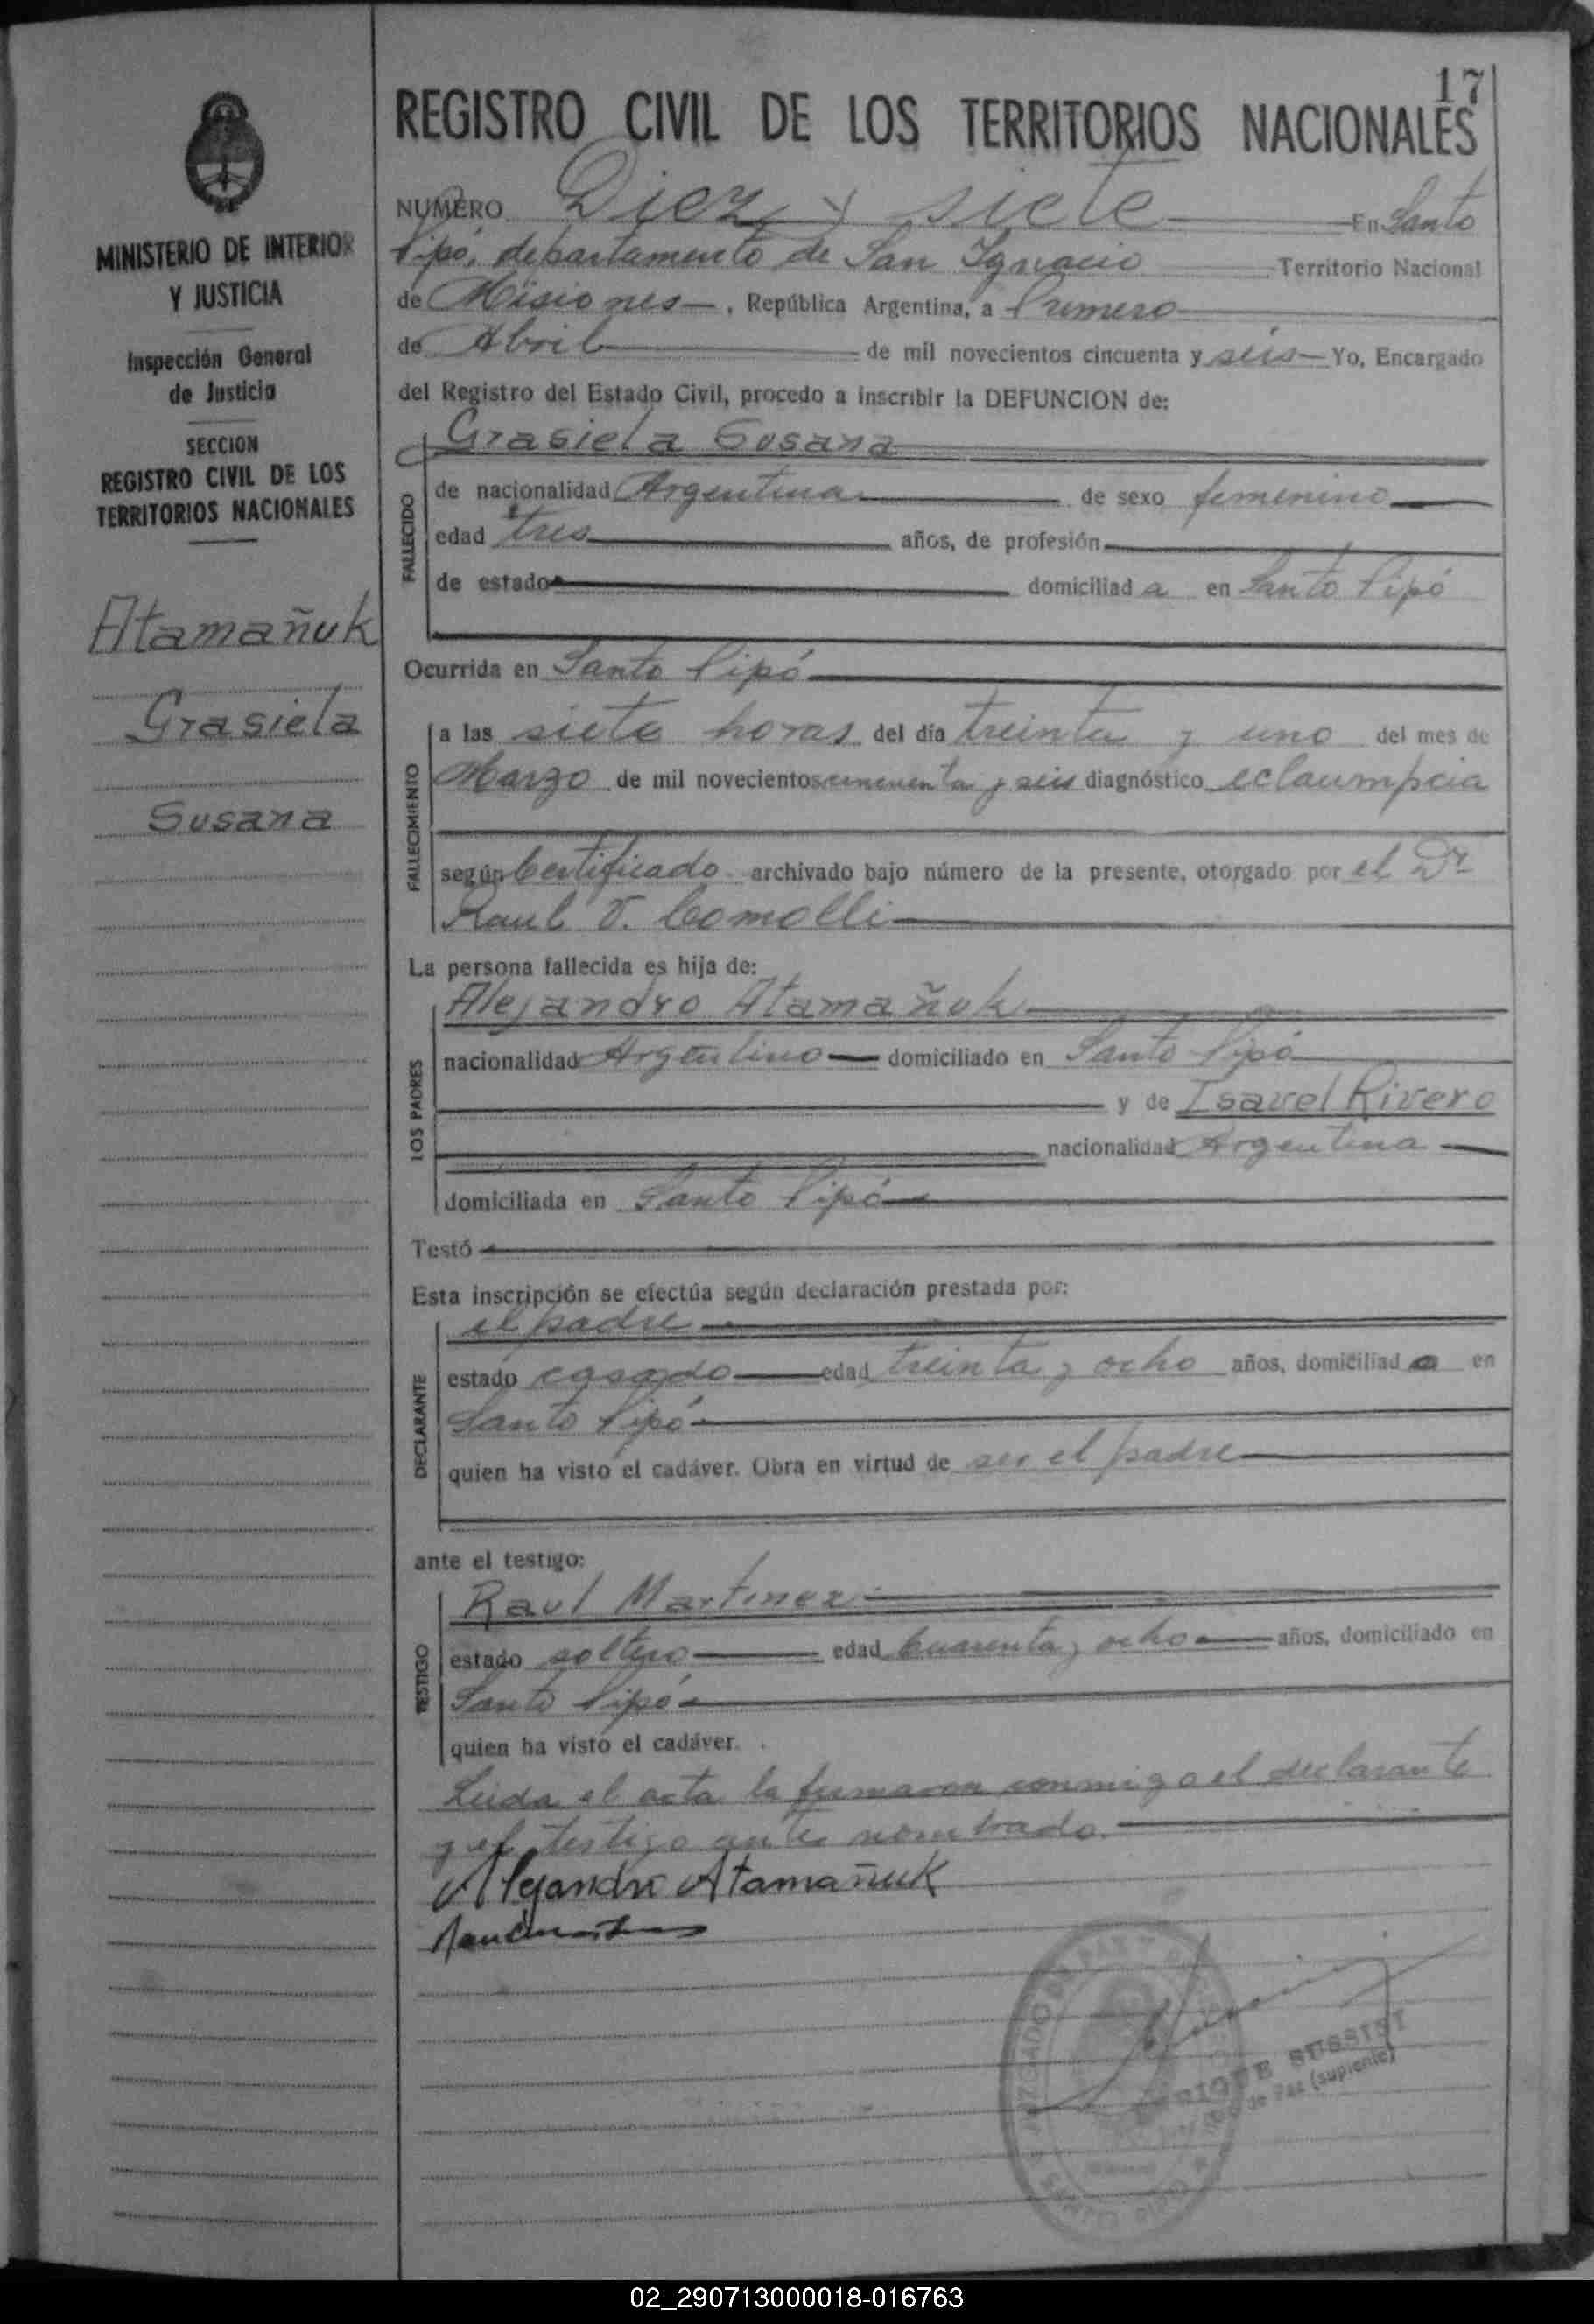 17
REGISTRO CIVIL DE LOS TERRITORIOS NACIONALES
MINISTERIO DE INTERIOR
Y JUSTICIA
Inspección General
de Justicia
SECCION
REGISTRO CIVIL DE LOS
TERRITORIOS NACIONALES
Atamañuk
Grasiela
Susana
NUMERO Diez y siete En Santo
Pipó, departamento de San Ignacio Territorio Nacional
de Misiones, República Argentina, a Primero
de Abril de mil novecientos cincuenta y seis Yo, Encargado
del Registro del Estado Civil, procedo a inscribir la DEFUNCION de:
Grasiela Susana
FALLECIDO
de nacionalidad Argentina de sexo femenino
edad tres años, de profesión
de estado domiciliad a en Santo Pipó
Ocurrida en Santo Pipó
FALLECIMIENTO
a las siete horas del día treinta y uno del mes de
Marzo de mil novecientos cincuenta y seis diagnóstico eclaumpcia
según Certificado archivado bajo número de la presente, otorgado por el Dr
Raul V. Comolli
La persona fallecida es hija de:
LOS PADRES
Alejandro Atamañuk
nacionalidad Argentino domiciliado en Santo Pipó
y de Isavel Rivero
nacionalidad Argentina
domiciliada en Santo Pipó
Testó
Esta inscripción se efectúa según declaración prestada por:
DECLARANTE
el padre
estado casado edad treinta y ocho años, domiciliad o en
Santo Pipó
quien ha visto el cadáver. Obra en virtud de ser el padre
ante el testigo:
TESTIGO
Raul Martinez
estado soltero edad cuarenta y ocho años, domiciliado en
Santo Pipó
quien ha visto el cadáver.
Leida el acta la firmaron conmigo el declarante
y el testigo antes nombrado.
Alejandro Atamañuk
JUZGADO DE PAZ
SANTO PIPO
ENRIQUE SUSSINI
de Paz (suplente)
02_290713000018-016763